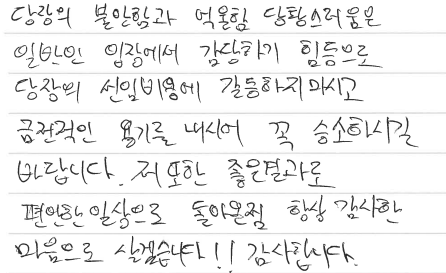 당장의 불안함과 억울함 당황스러움은
일반인 입장에서 감당하기 힘듬으로
당장의 선임비용에 갈등하지마시고
금전적인 용기를 내시어 꼭 승소하시길
바랍니다. 저 또한 좋은결과로
편안한일상으로 돌아온점 항상 감사한
마음으로 살겠습니다!! 감사합니다.